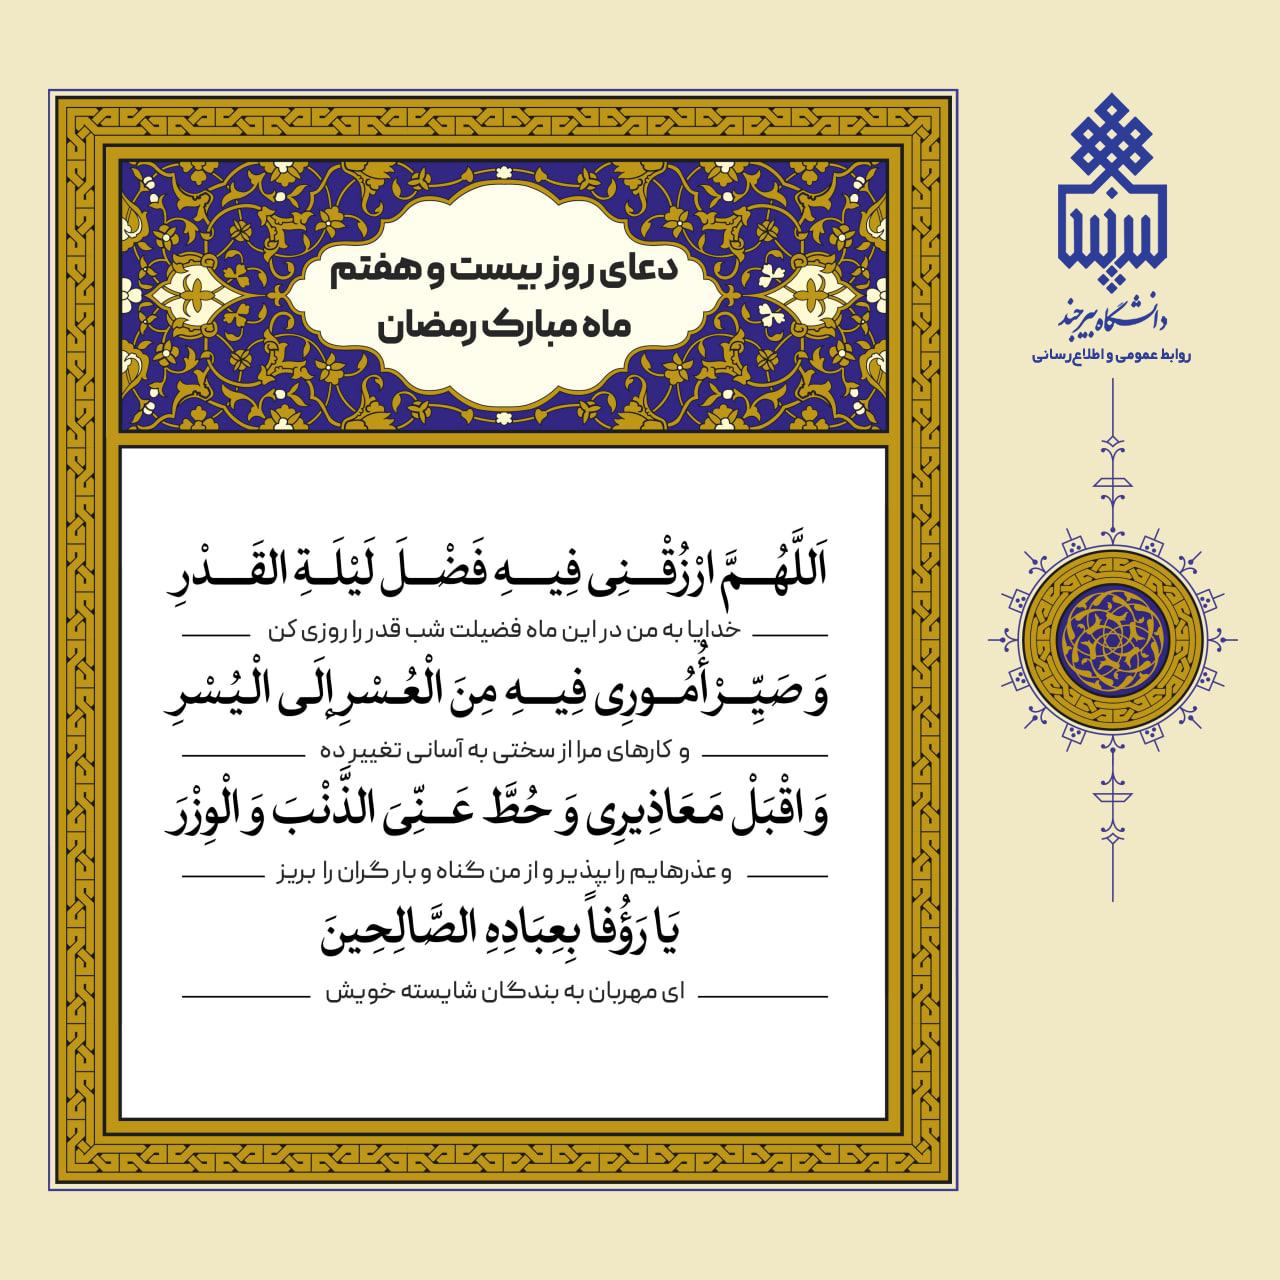 دعای روز بیست و هفتم
ماه مبارک رمضان
اَللَّهُمَّ ارْزُقْنِی فِیهِ فَضْلَ لَیْلَةِ القَدْرِ
خدایا به من در این ماه فضیلت شب قدر را روزی کن
وَ صَیِّرْ أُمُورِی فِیهِ مِنَ الْعُسْرِ إلَی الْیُسْرِ
و کارهای مرا از سختی به آسانی تغییر ده
وَ اقْبَلْ مَعَاذِیرِی وَ حُطَّ عَنِّیَ الذَّنْبَ وَ الْوِزْرَ
و عذرهایم را بپذیر و از من گناه و بار گران را بریز
یَا رَؤُفاً بِعِبَادِهِ الصَّالِحِینَ
ای مهربان به بندگان شایسته خویش
دانشگاه بیرجند
روابط عمومی و اطلاع‌رسانی